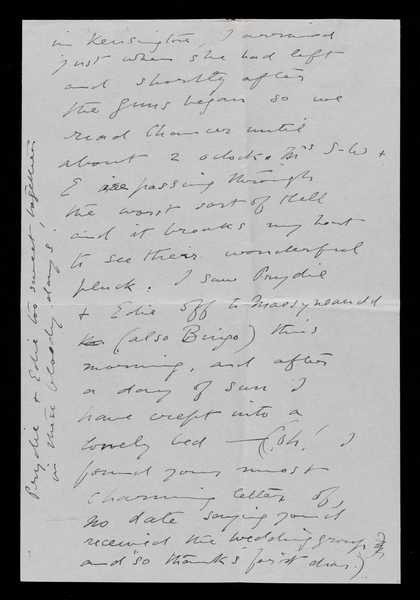 in Kensington, I arrived
just when she had left
and shortly after
the guns began so we
read Chaucer until
about 2 oclock. Mrs S-W +
E are passing through
the worst sort of Hell
and it breaks my heart
to see their wonderful
pluck. I saw Prydie
+ Edie off to
(also Bingo) this
morning, and after
a day of sun I
have crept into a
lonely bed — (Oh! I
found your most
charming letter of,
no date saying you'd
received the wedding group
and so thanks for it dear.)
Prydie + Edie too sweet together
in these bloody days.